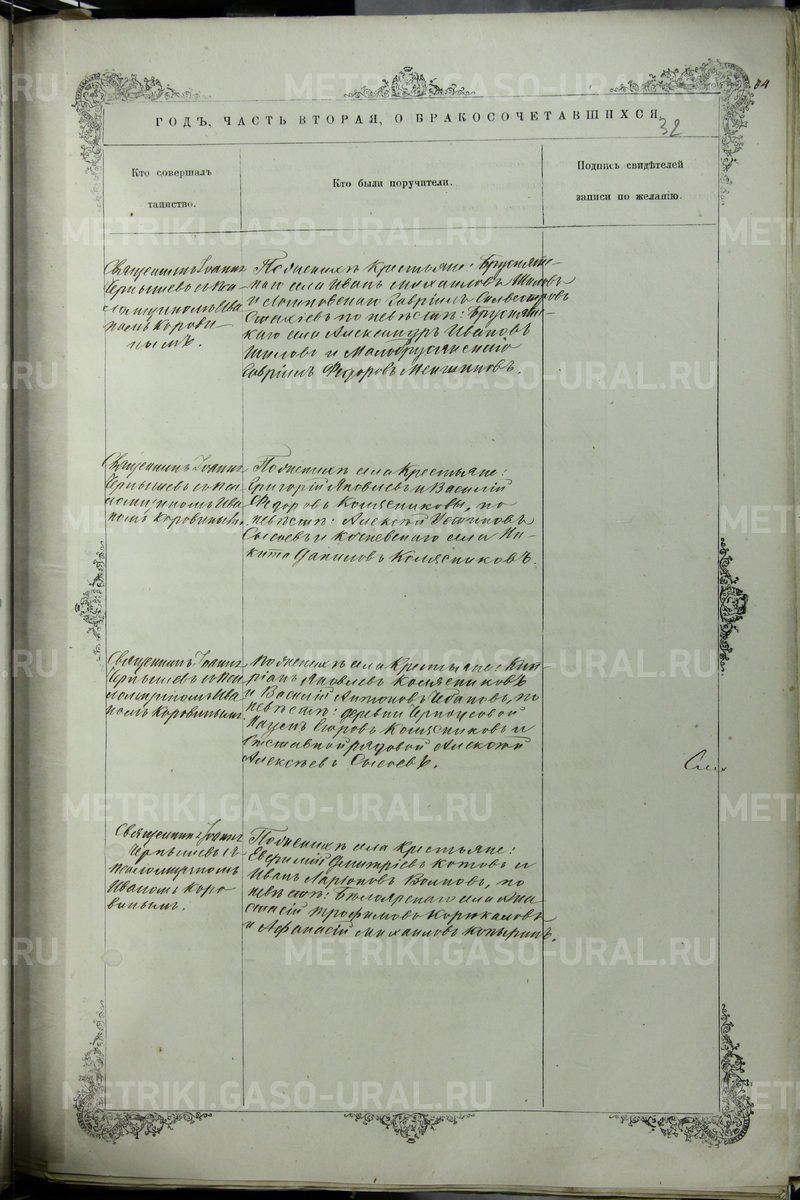 84
ГОДЪ, ЧАСТЬ ВТОРАЯ, О БРАКОСОЧЕТАВШИХСЯ,
32
Кто совершалъ
таинство.
Кто были поручители.
Подпись свидѣтелей
записи по желанію.
Священникъ Іоаннъ
Чернышевъ съ
Ива
номъ Корови
нымъ.
По женихѣ крестьяне: Бруснятс-
каго села Иванъ Михаиловъ Шиловъ
и Гавріилъ Сильвестровъ
по невѣстѣ: Бруснятс-
каго села Александръ Ивановъ
Шиловъ и Малобрусянскаго
Гавріилъ Ѳедоровъ Меншиковъ.
Священникъ Іоаннъ
Чернышевъ съ пса
ломщикомъ Ива
номъ Коровинымъ.
По женихѣ села крестьяне:
Григорій Яковлевъ и Василій
Ѳедоровъ Колясниковы, по
невѣстѣ: Алексѣй
Сысоевъ и села Ни-
кита Даниловъ Колясниковъ.
Священникъ Іоаннъ
Чернышевъ съ пса
ломщикомъ Ива
номъ Коровинымъ.
По женихѣ села крестьяне: Кип-
ріанъ Яковлевъ Колясниковъ
и Василій Антоновъ Ивановъ, по
невѣстѣ: деревни Черноусовой
Колясниковъ и
рядовой Алексѣй
Алексѣевъ Сысоевъ.
Священникъ Іоаннъ
Чернышевъ съ
псаломщикомъ
Иваномъ Коро
винымъ.
По женихѣ села крестьяне:
Евфимій Дмитріевъ Котовъ и
Иванъ Ларіоновъ Волковъ, по
невѣстѣ: Бѣлоярскаго села Ана
стасій Трофимовъ Корюкаловъ
и Афанасій Михаиловъ Копыринъ.
METRIKI.GASO-URAL.RU